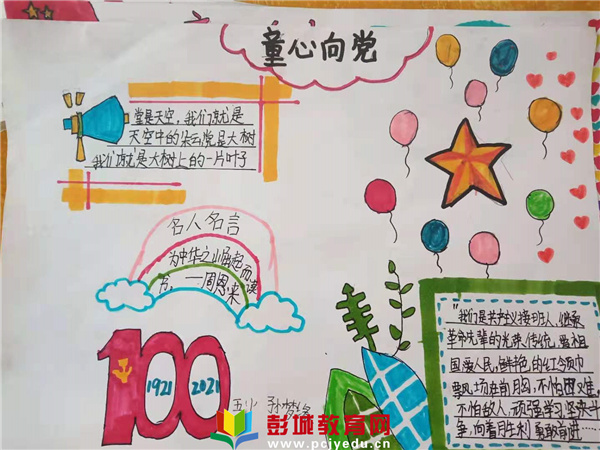 童心向党
党是天空,我们就是
天空中的朵云党是大树
我们就是大树上的一片叶子
名人名言
为中华之崛起而读
书,一周恩来
100
1921 2021
五(1) 孙梦
"我们是共产主义接班人,继承
革命先辈的光荣传统,爱祖
国爱人民,鲜艳的红领巾
飘扬在前胸,不怕困难,
不怕敌人,顽强学习,坚决斗
争,向着胜利勇敢前进……
彭城教育网
www.pcjyedu.cn